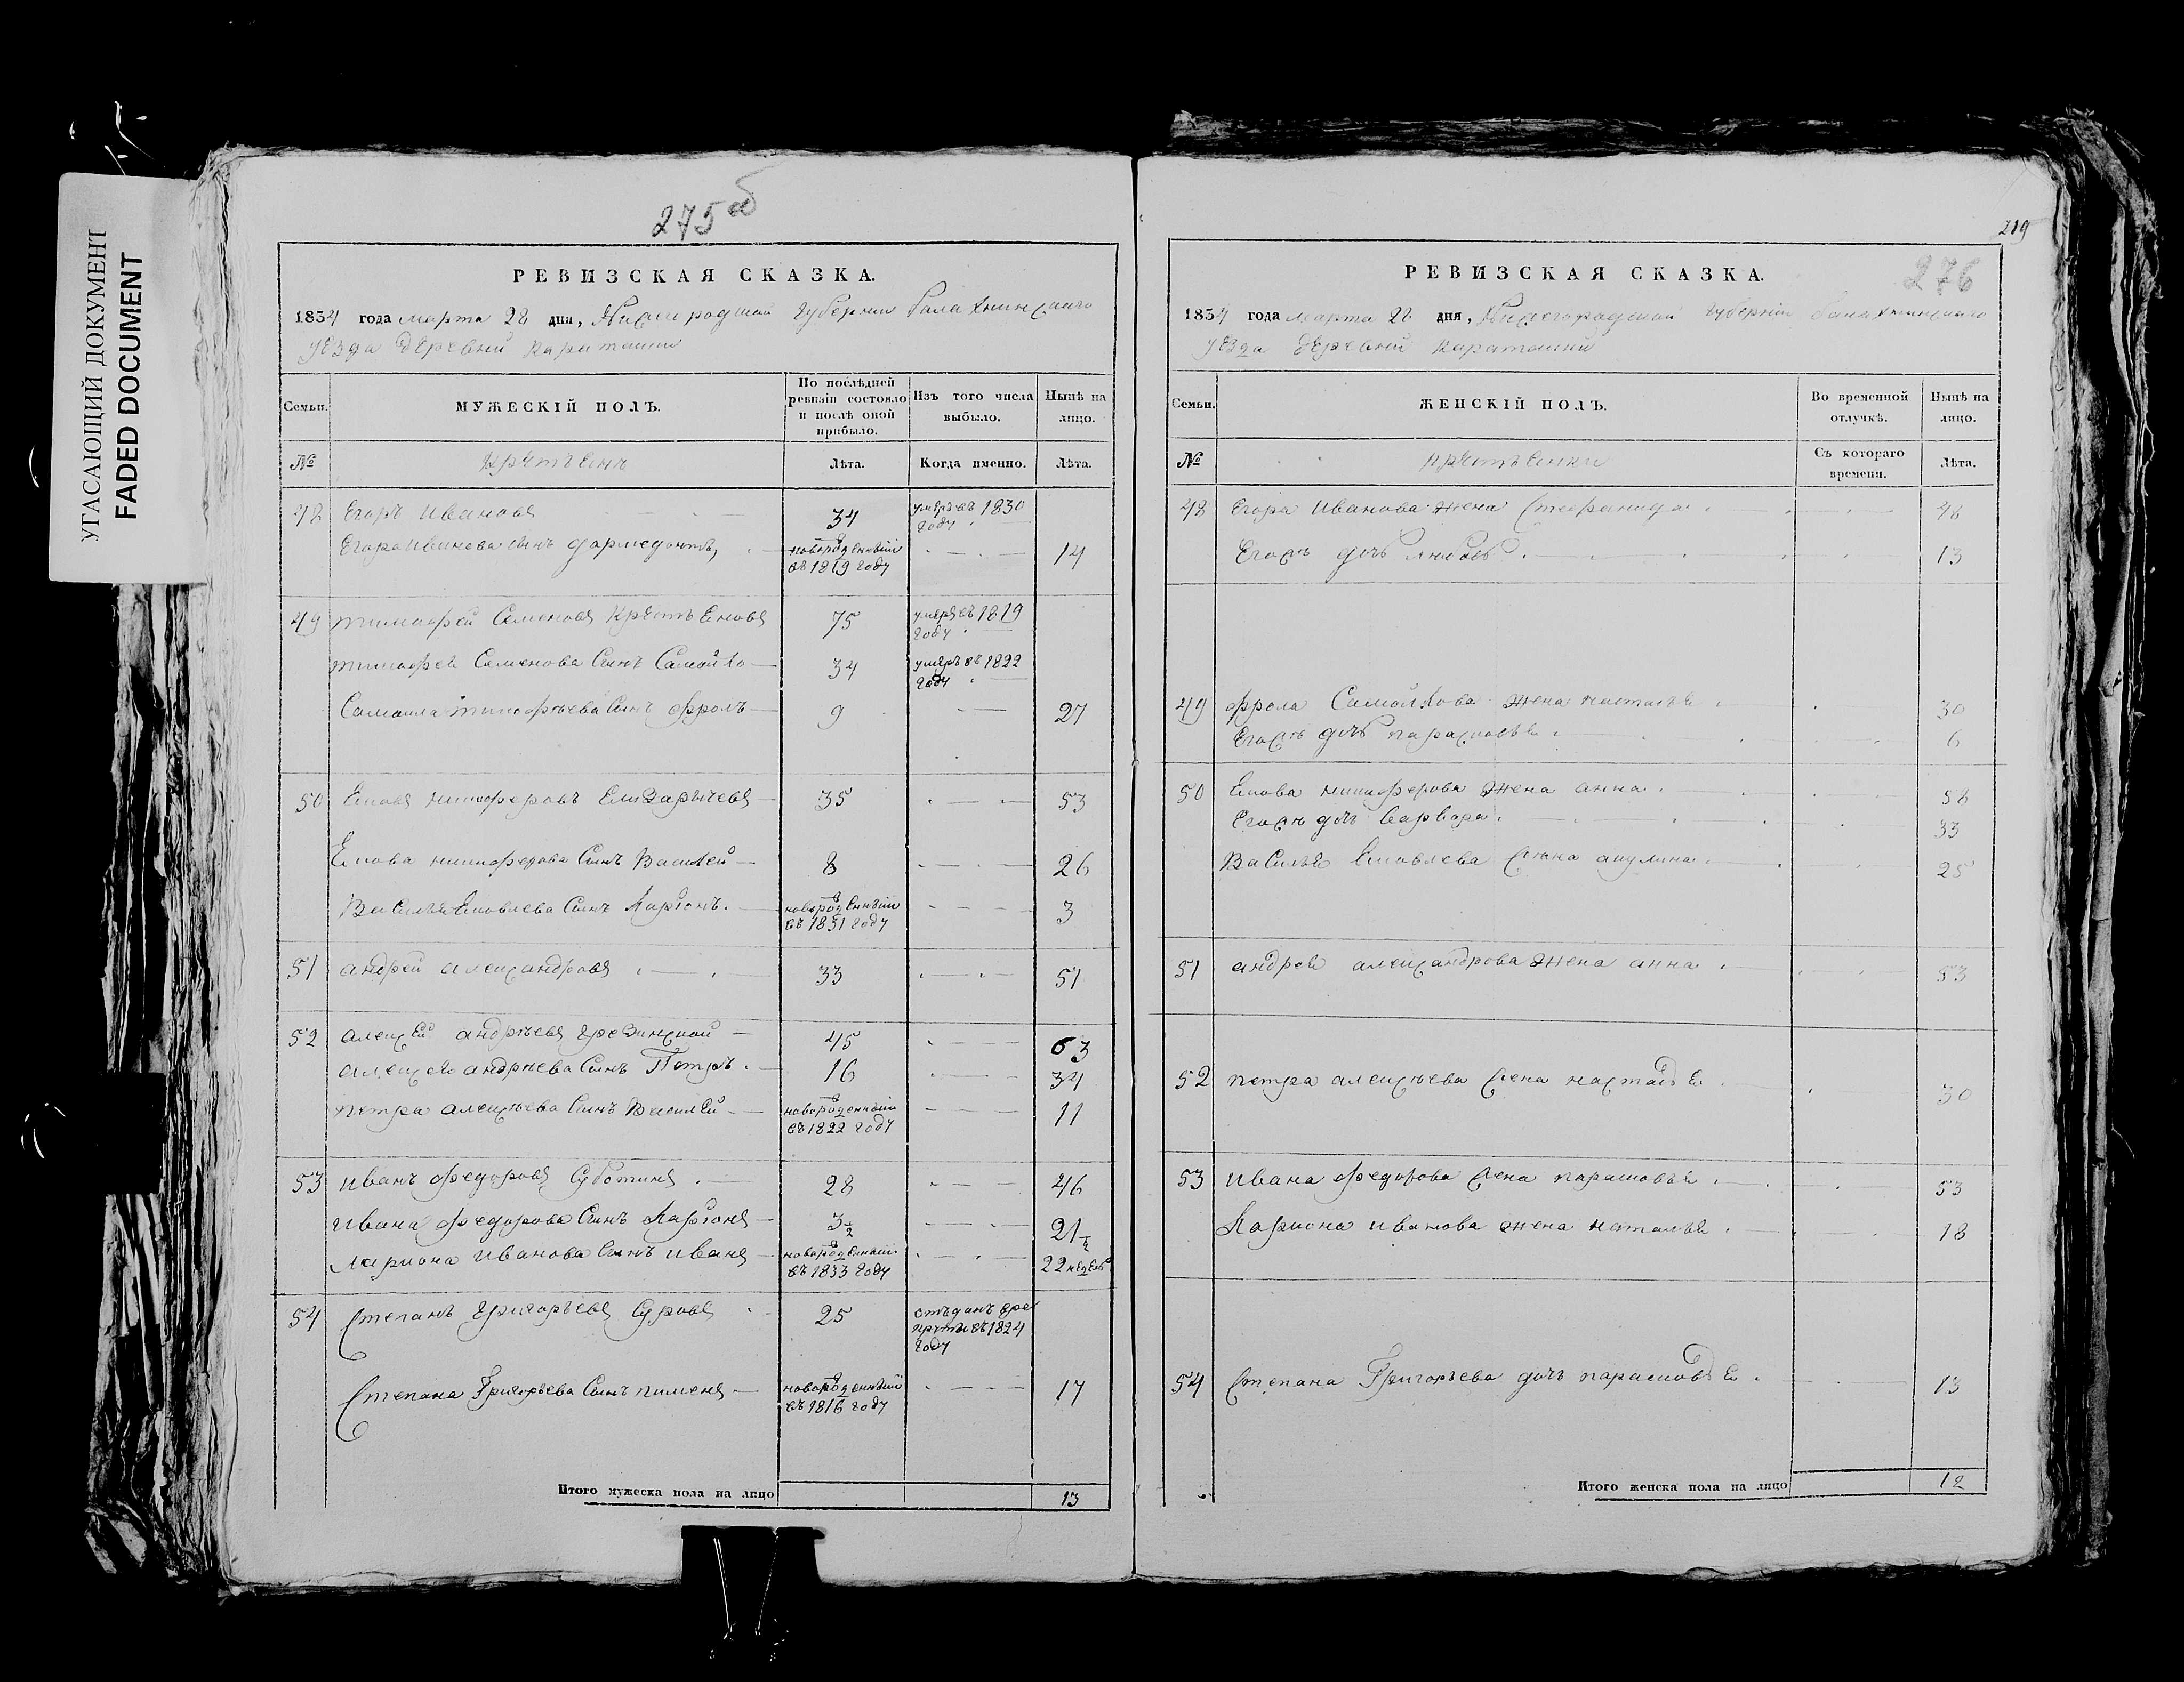 УГАСАЮЩИЙ ДОКУМЕНТ
FADED DOCUMENT
275 об
РЕВИЗСКАЯ СКАЗКА.
1834 года марта 28 дня, Нижегородской Губернии Балахнинскаго
уезда деревни
Семьи.
МУЖЕСКІЙ ПОЛЪ.
По послѣдней ревизіи состояло и послѣ оной прибыло.
Изъ того числа выбыло.
Нынѣ на лицо.
№
Лѣта.
Когда именно.
Лѣта.
48 Егоръ Ивановъ 34 умеръ въ 1830 году
Егора Иванова сынъ новорожденный въ 1819 году 14
49 тимофей Семеновъ 75 умеръ въ 1819 году
тимофея Семенова Сынъ Самойло 34 умеръ въ 1822 году
Самоила тимофѣева Сынъ фролъ 9 27
50 35 53
Сынъ Василей 8 26
Василья Сынъ Ларіонъ. новорожденный въ 1831 году 3
51 андрей александровъ 33 51
52 алексей андрѣевъ 45 63
алексея андрѣева Сынъ Петръ. 16 34
петра алексѣева Сынъ Василей новорожденный въ 1822 году 11
53 иванъ федоровъ Суботинъ 28 46
ивана федорова Сынъ Ларіонъ 3½ 21½
лариона иванова Сынъ иванъ новорожденный въ 1833 году 22 недель
54 Степанъ Григорьевъ Суровъ 25 отъданъ въ 1824 году
Степана Григорьева Сынъ пименъ новорожденный въ 1816 году 17
Итого мужеска пола на лицо 13
219
276
РЕВИЗСКАЯ СКАЗКА.
1834 года марта 28 дня, Нижегородской Губернии Балахнинскаго
уезда деревни
Семьи.
ЖЕНСКІЙ ПОЛЪ.
Во временной отлучкѣ.
Нынѣ на лицо.
№
Съ котораго времени.
Лѣта.
48 Егора Иванова жена Стефанида 48
Егожъ дочь любовь 13
49 фрола Самойлова жена настасья 30
Егожъ дочь парасковья 6
50 жена анна 58
Егожъ дочь варвара 33
Василья жена акулина 25
51 андрея александрова жена анна 53
52 петра алексѣева жена настасья 30
53 ивана федорова жена парасковья 53
Лариона иванова жена наталья 18
54 Степана Григорьева дочь парасковья 13
Итого женска пола на лицо 12